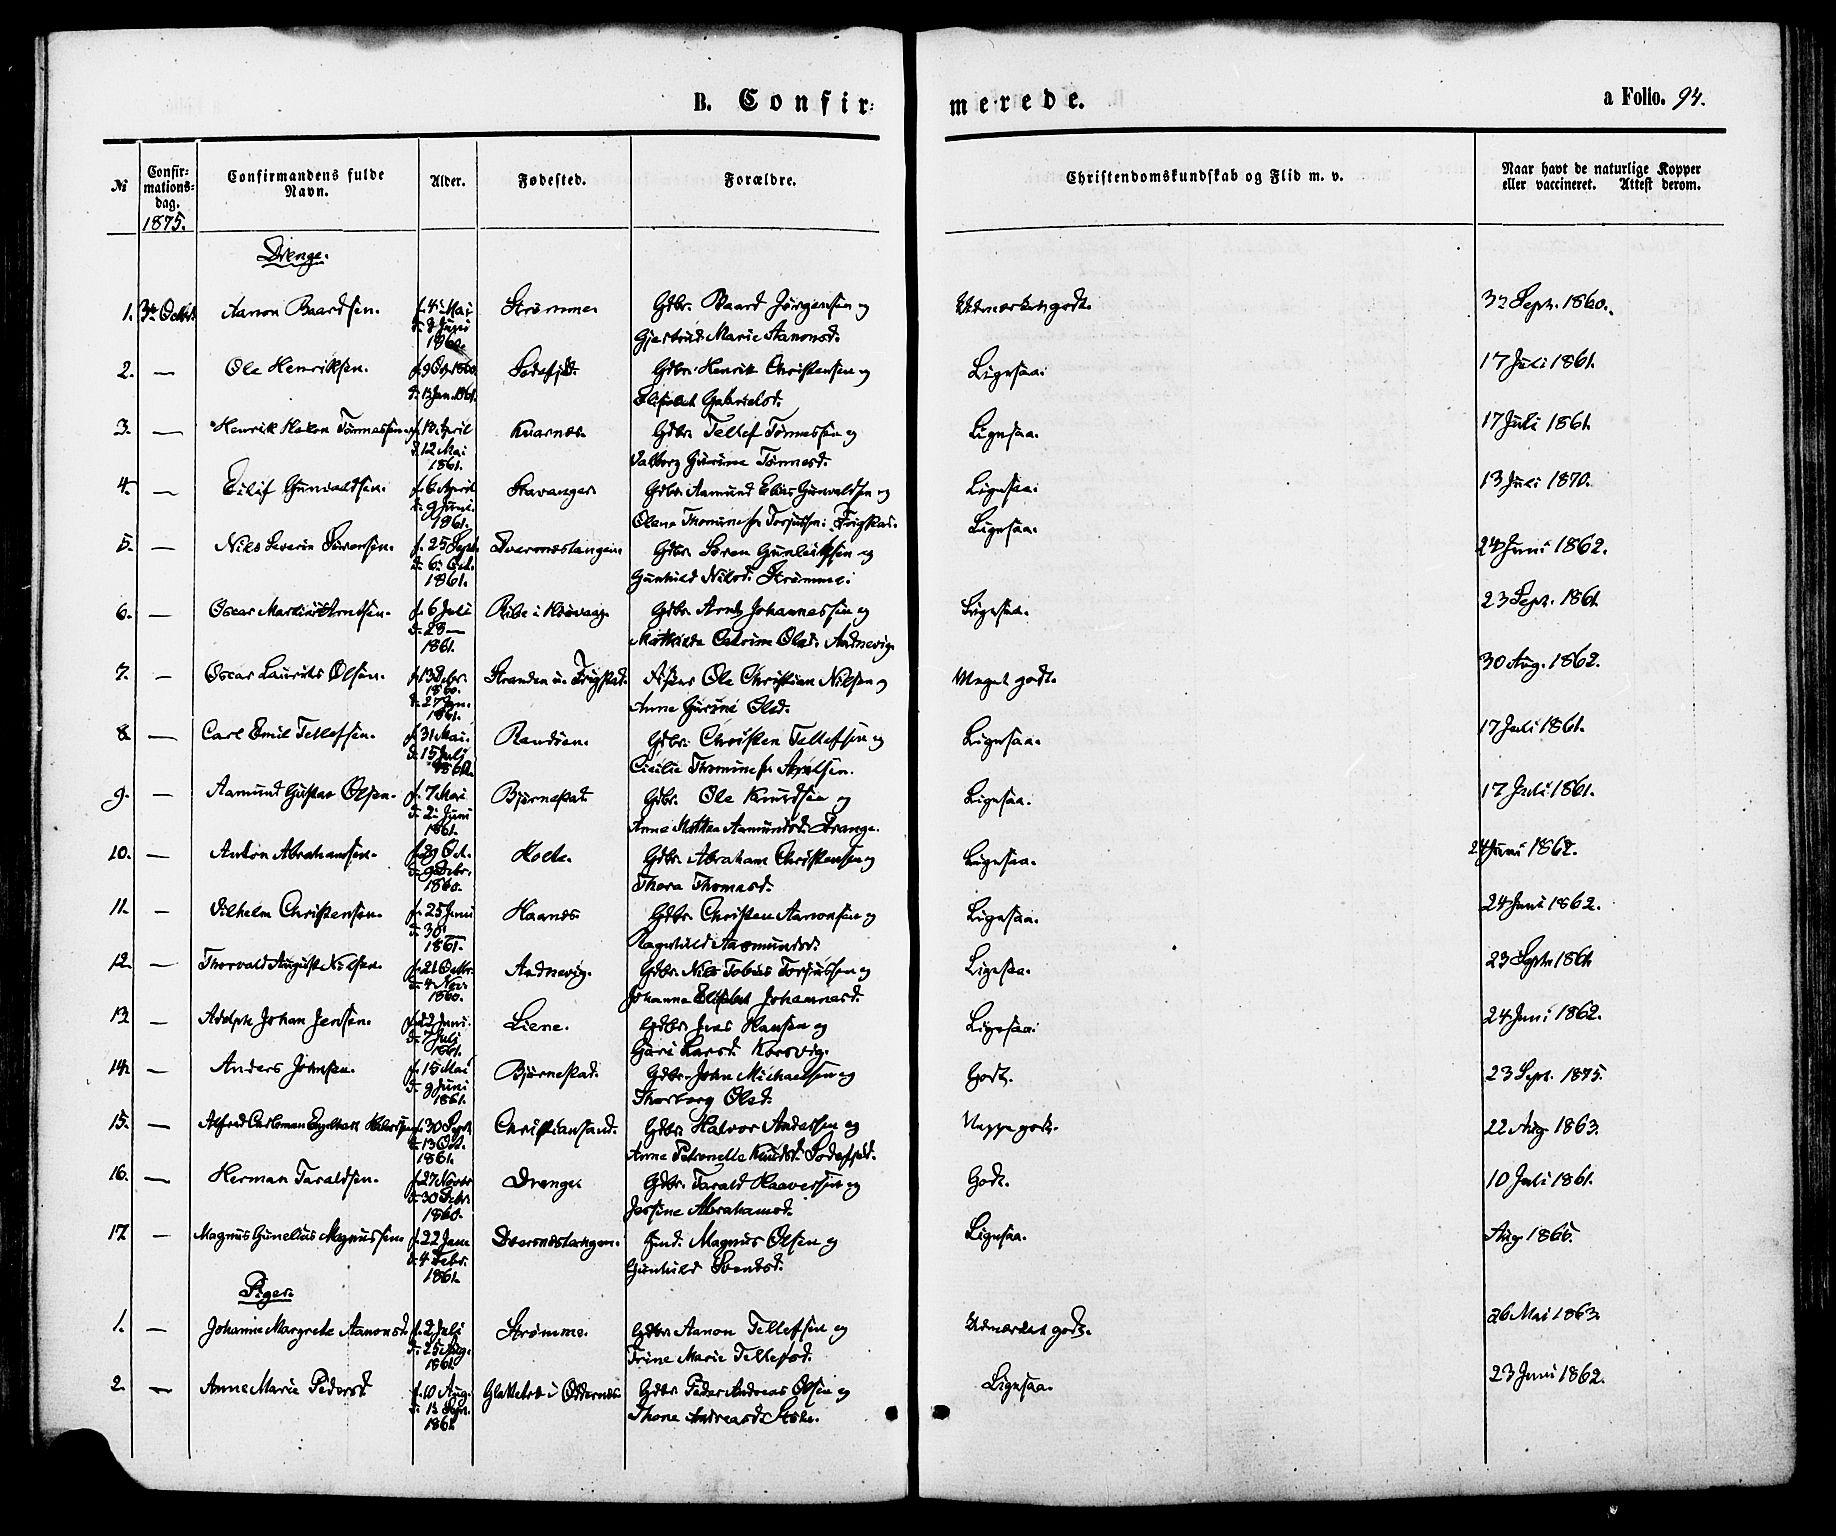 B. Confir=
merede.
a Folio. 94.
№
Confir-
mations-
dag.
1875.
Confirmandens fulde
Navn.
Alder.
Fødested.
Forældre.
Christendomskundskab og Flid m. v.
Naar havt de naturlige Kopper
eller vaccineret. Attest derom.
Drenge.
1. 3die Octbr. Aanon Baardsen. f. 4 Mai Strømme. Gdbr. Baard Jørgensen og Udmærket godt. 3 Sept. 1860.
d. Juni Gjertrud Marie Aanonsd.
1860.
2. — Ole Henriksen. f. 9 Oct 1860 Gdbr. Henrik Christensen og Ligesaa. 17 Juli 1861.
d. Jan. 1861. Elisabet Gabrielsd.
3. — Henrik Hakon Tønnessen f. April Kvarnes. Gdbr. Tellef Tønnessen og Ligesaa. 17 Juli 1861.
d. 12 Mai Valborg Gurine Tønnesd.
1861.
4. — Eilif Gunvaldsen. f. 6 April Stavanger. Gdbr. Aamund Elias Gunvaldsen og Ligesaa. 13 Juli 1870.
d. 9 Juni Olene Thomine f. Torjussen. Frigstad.
1861.
5. — Nils Severin Sørensen. f. 25 Sept. Dversnestangen. Gdbr. Søren Gunleiksen og Ligesaa. 24 Juni 1862.
d. 6 Oct. Gunhild Nilsd. Strømme.
1861.
6. — Oscar Martinius Arntsen. f. 6 Juli Ribe i Høivaag. Gdbr. Arnt Johannessen og Ligesaa. 23 Sept. 1861.
d. 28 — Mathilde Catrine Olsd. Andnevig.
1861.
7. — Oscar Laurits Olsen. f. 13 Debr. Stranden u. Frigstad. Ole Christian Nilsen og Meget godt. 30 Aug. 1862.
1860.
d. 27 Jan. Anne Gurine Olsd.
1861.
8. — Carl Emil Tellefsen. f. 31 Mai. Randøen. Gdbr. Christen Tellefsen og Ligesaa. 17 Juli 1861.
d. 15 Juli Cicilie Thomine f. Axelsen.
9. — Aamund Gustav Olsen. f. 7 Mai Bjørnestad Gdbr. Ole Knudsen og Ligesaa. 17 Juli 1861.
d. 2 Juni Anne Mathea Aamundsd. Drange.
1861.
10. — Anton Abrahamsen. f. 29 Oct. Holte. Gdbr. Abraham Christensen og Ligesaa. 24 Juni 1862.
d. 9 Debr. Thora Thomasd.
1860.
11. — Vilhelm Christensen. f. 25 Juni Haanes. Gdbr. Christen Aanonsen og Ligesaa. 24 Juni 1862.
d. 30 — Ragnhild Aasmundsd.
1861.
12. — Thorvald August Nilsen. f. 21 Octbr. Andnevig. Gdbr. Nils Tobias Torjussen og Ligesaa. 23 Sept. 1861
d. 4 Nov. Johanne Elisabet Johannesd.
1860.
13. — Adolph Johan Jensen. f. 22 Juni. Liene. Gdbr. Jens Hansen og Ligesaa. 24 Juni 1862.
d. 7 Juli Guri Larsd. Korsvig.
1861.
14. — Anders Johnsen. f. 15 Mai Bjørnestad. Gdbr. John Michaelsen og Godt. 23 Sept. 1875.
d. 9 Juni Thorborg Olsd.
1861.
15. — Alfred Carloman Engelhart Halvorsen f. 30 Sept. Christiansand. Gdbr. Halvor Andersen og Neppe godt. 22 Aug 1863.
d. 13 Oct. Anne Petronelle Knudsd.
1861.
16. — Herman Taraldsen. f. 27 Novbr Drange. Gdbr. Tarald Haaversen og Godt. 10 Juli 1861.
d. 30 Debr. Jessine Abrahamsd.
1860.
17. — Magnus Gunelius Magnussen. f. 22 Jan. Dversnestangen. Magnus Olsen og Ligesaa. Aug 1866.
d. 4 Febr. Gunhild Svendsd.
1861.
Piger.
1. — Johanne Margrete Aanonsd. f. 2 Juli Strømme. Gdbr. Aanon Tellefsen og Udmærket godt. 26 Mai 1863.
d. 25 Aug. Trine Marie Tellefsd.
1861.
2. — Anne Marie Pedersd. f. 10 Aug. i Oddernes. Gdbr. Peder Andreas Olsen og Ligesaa. 23 Juni 1862.
d. Sept. Thone Andreasd.
1861.